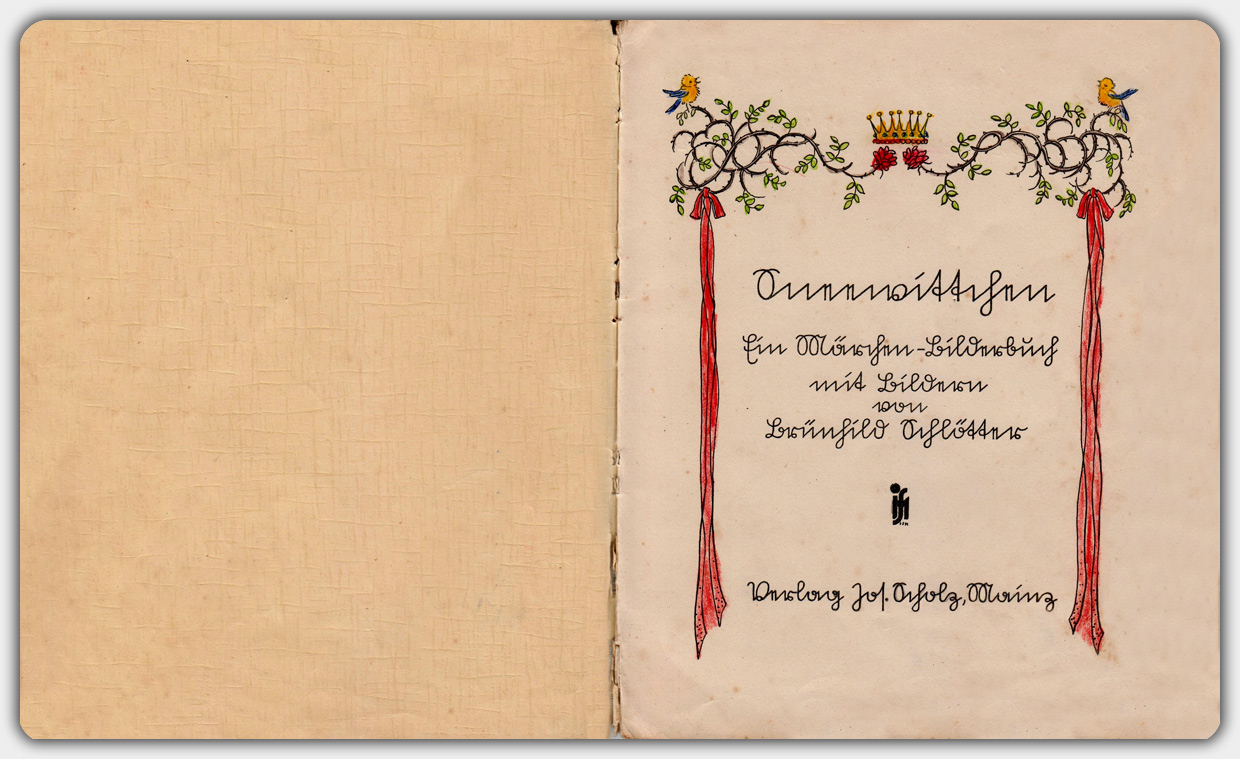 Sneewittchen
Ein Märchen-Bilderbuch
mit Bildern
von
Brünhild Schlötter
Verlag Jos. Scholz, Mainz